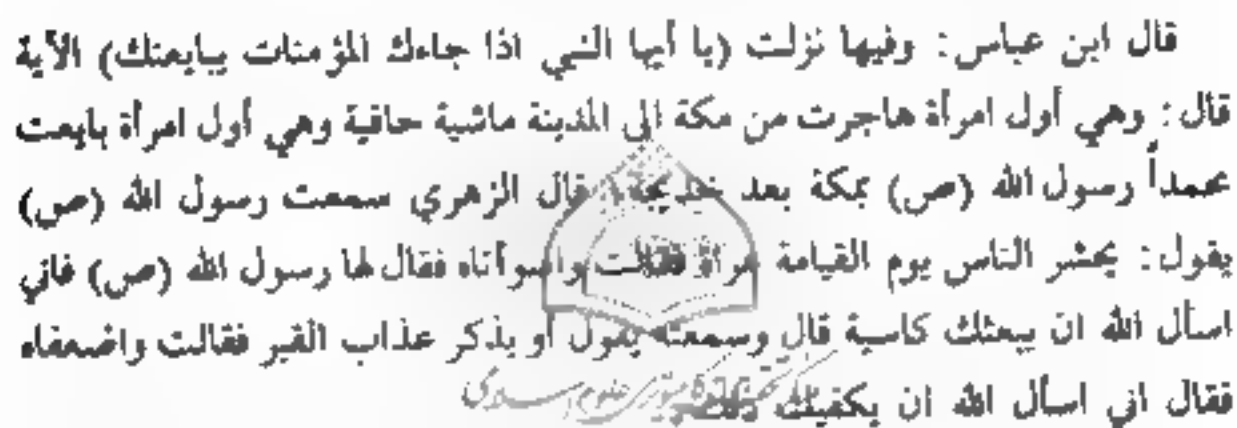 قال ابن عباس: وفيها نزلت (يا أيها النبي اذا جاءك المؤمنات يبايعنك) الآية
قال: وهي أول امرأة هاجرت من مكة الى المدينة ماشية حافية وهي أول امرأة بايعت
محمداً رسول الله (ص) بمكة بعد خديجة، قال الزهري سمعت رسول الله (ص)
يقول: يحشر الناس يوم القيامة عراة فقالت واسوأتاه فقال لها رسول الله (ص) فاني
اسأل الله ان يبعثك كاسية قال وسمعته يقول أو يذكر عذاب القبر فقالت واضعفاه
فقال اني اسأل الله ان يكفيك ذلك